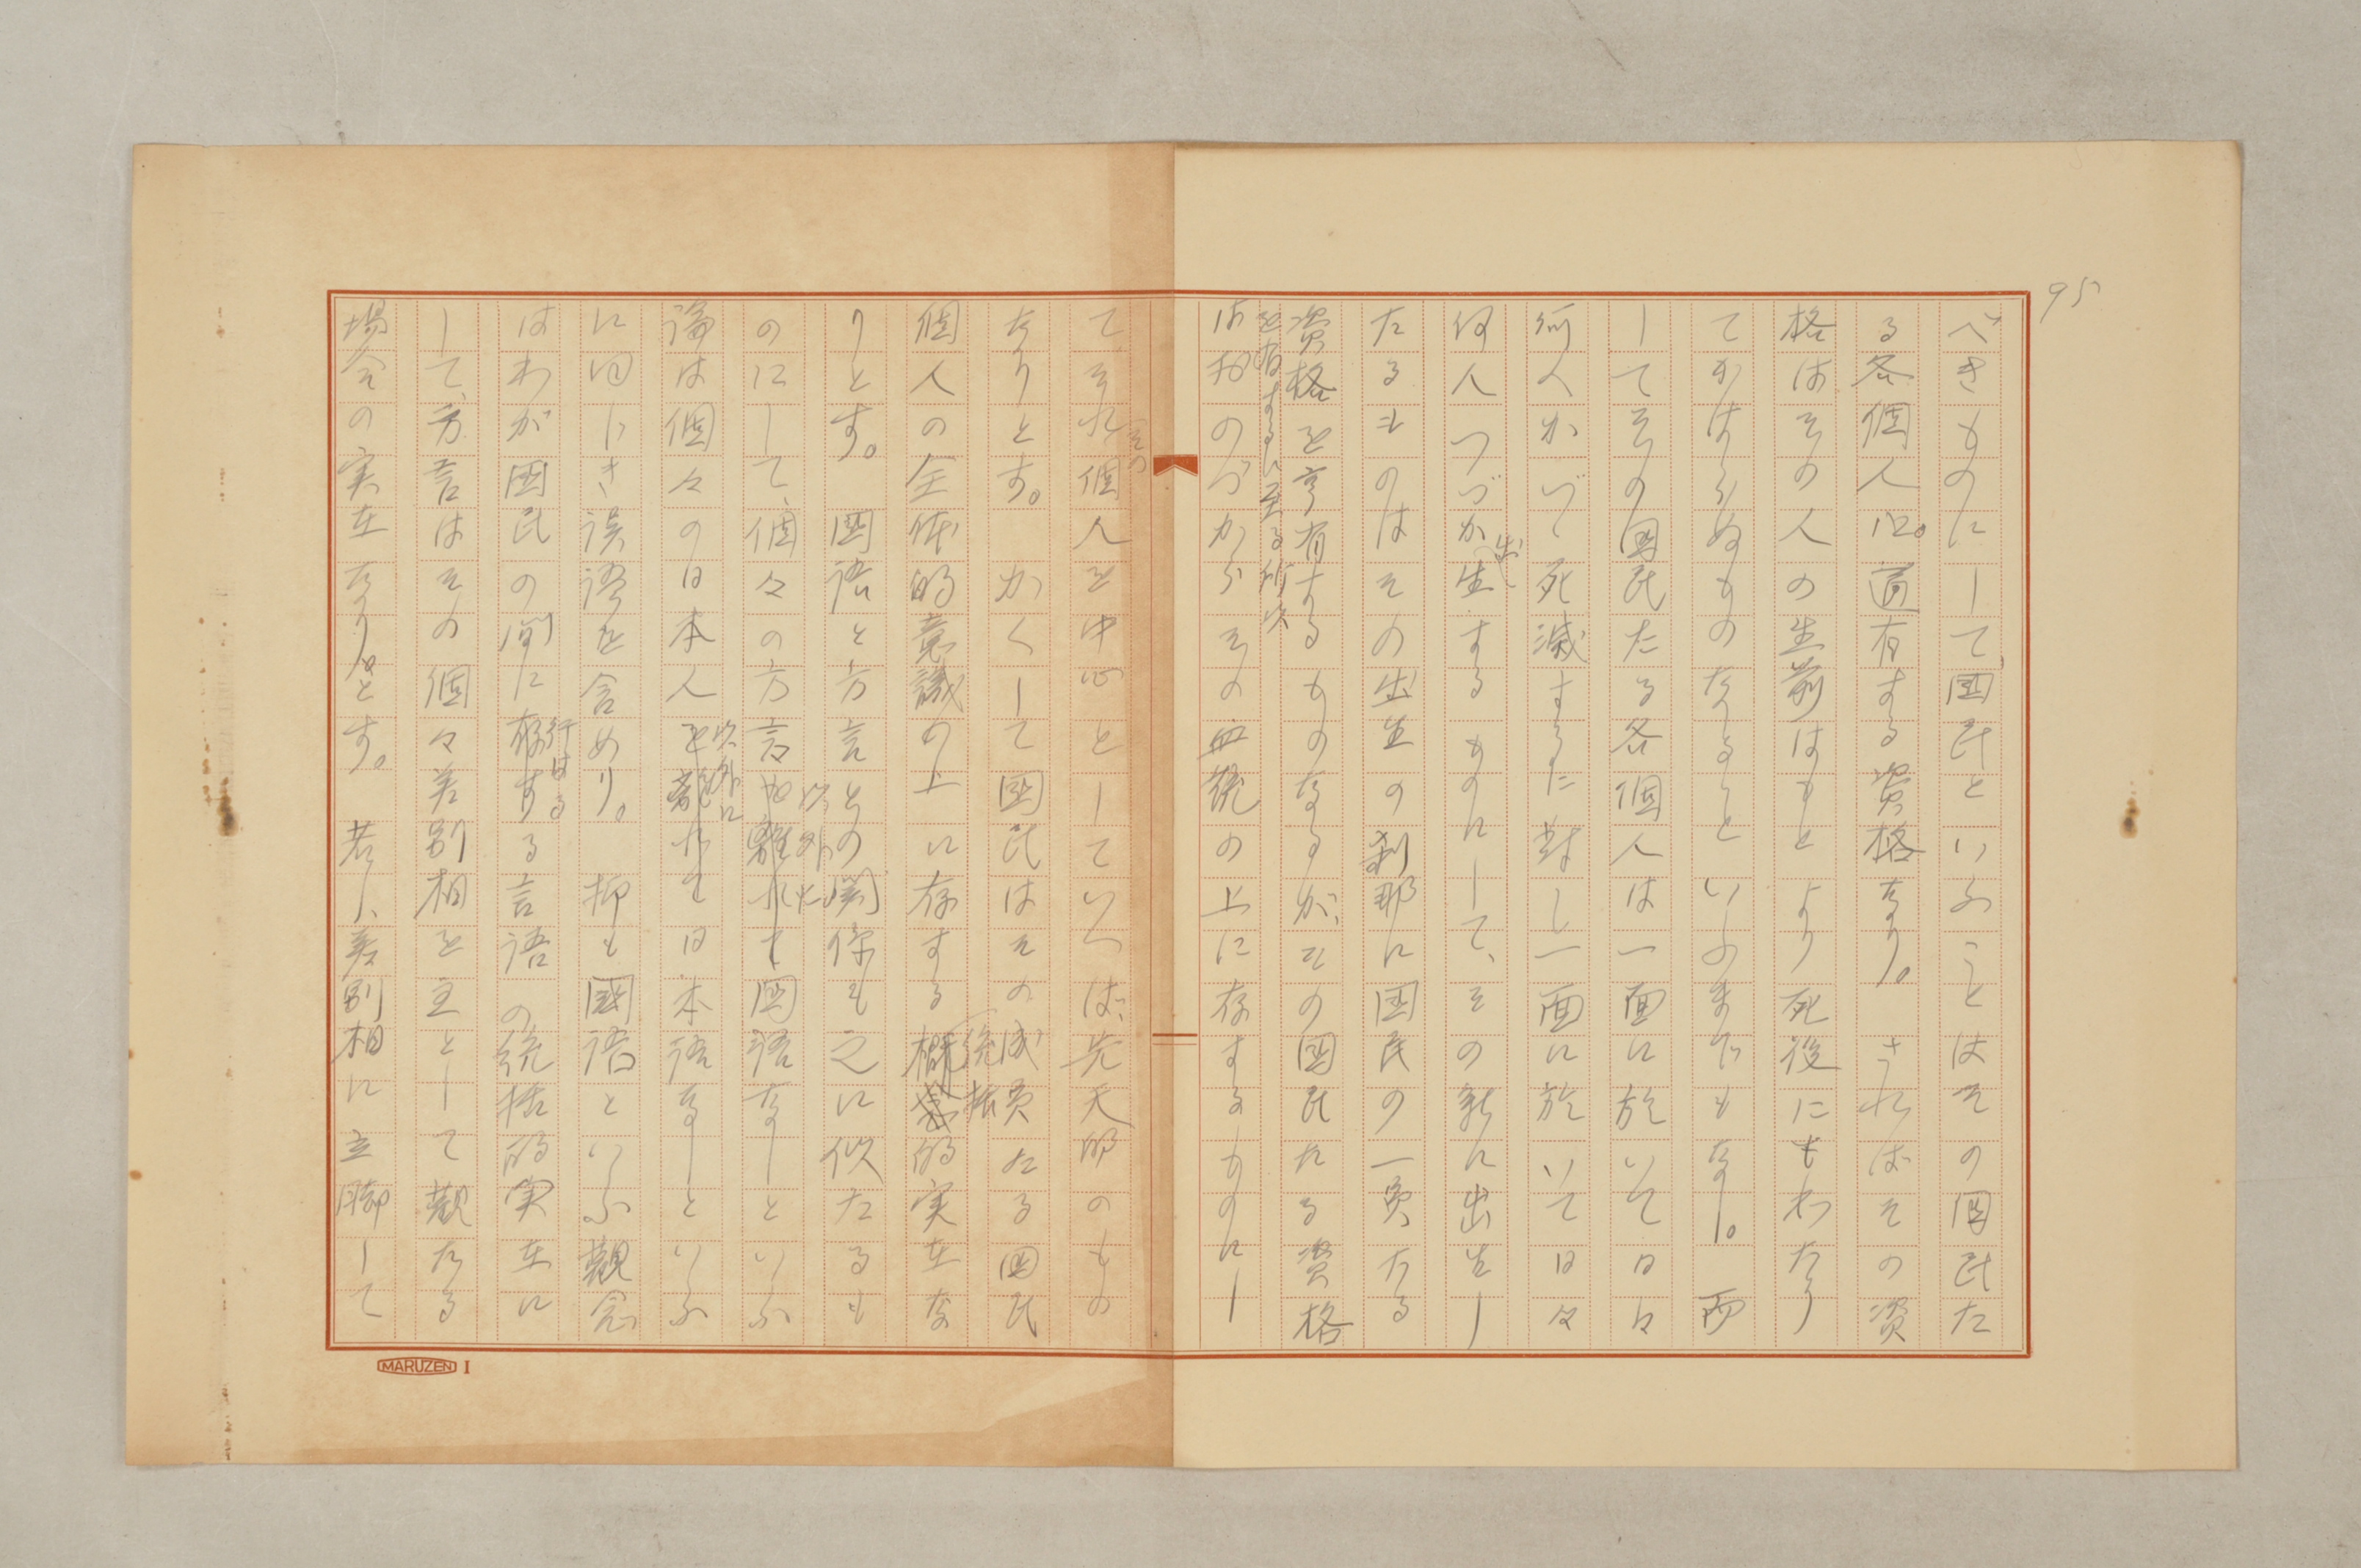 95
べきものにして、国民といふことはその国民た
る各個人に通有する資格なり。　さればその資
格はその人の生前はもとより死後にもわたり
てかはらぬものなることいふまでもなし。而
してその国民たる各個人は一面に於いて日々
何人かづゝ死滅するに対し一面に於いて日々
何人づつか出生するものにして、その新に出生し
たるものはその出生の刹那に国民の一員たる
資格を享有するものなるが、その国民たる資格
を有するに至る所以
はおのづからその血統の上に存するものにし
て、それその個人を中心としていへば、先天的のもの
なりとす。　かくして国民はその成員たる国民
個人の全体的意識の上に存する統括的実在な
りとす。　国語と方言との関係も之に似たるも
のにして、個々の方言以外に国語なしといふ
論は個々の日本人以外に日本語なしといふ
に同じき誤謬を含めり。　抑も国語といふ観念
はわが国民の間に行はるる言語の統括的実在に
して、方言はその個々差別相を主として観たる
場合の実在なりとす。　若し、差別相に立脚して
MARUZEN I